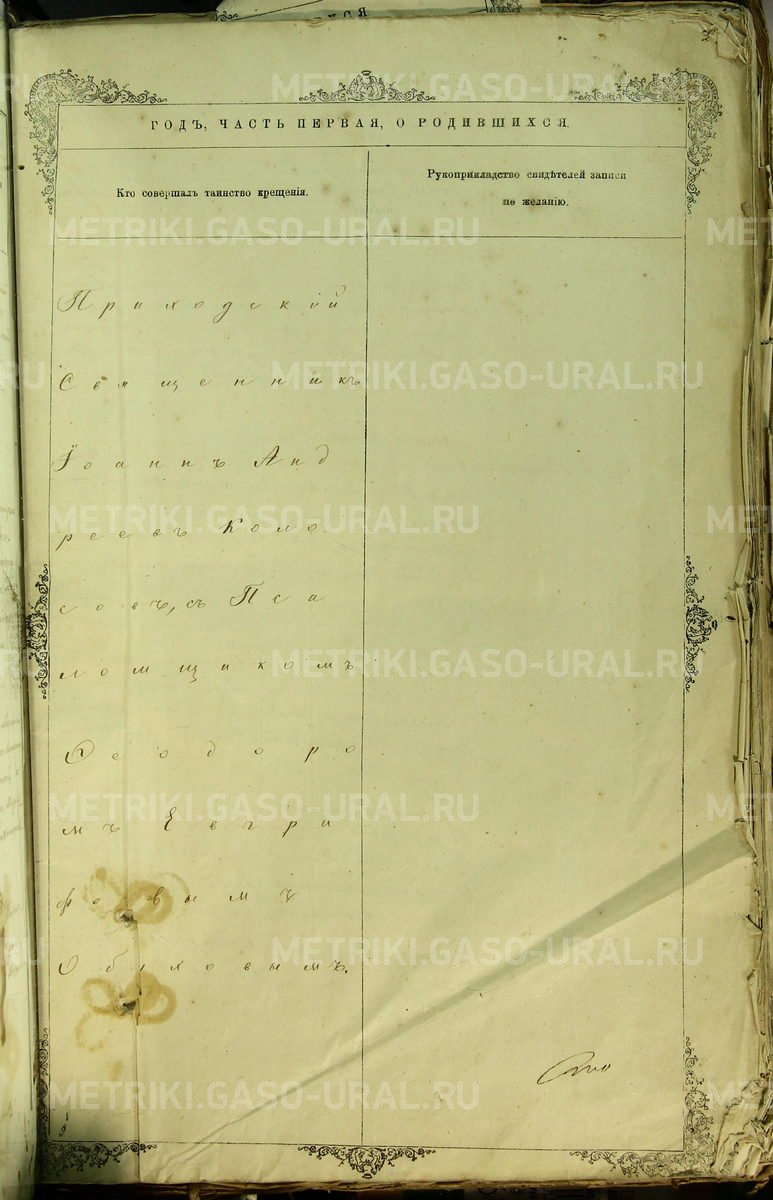 ГОДЪ, ЧАСТЬ ПЕРВАЯ, О РОДИВШИХСЯ.
Кто совершалъ таинство крещенія.
Рукоприкладство свидѣтелей записи
по желанію.
Приходскій
Священникъ
Іоаннъ Анд
реевъ Коло
совъ, съ Пса
ломщикомъ
Ѳеодоро
мъ Евгри
фовымъ
Обуховымъ.
METRIKI.GASO-URAL.RU